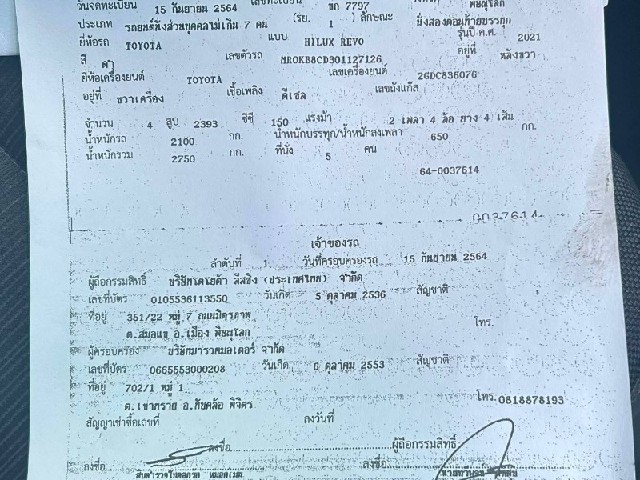 วันจดทะเบียน 15 กันยายน 2564 เลขทะเบียน 7797 พิษณุโลก
ประเภท รถยนต์นั่งส่วนบุคคลไม่เกิน 7 คน (รย. 1 ลักษณะ นั่งสองตอนท้ายบรรทุก
ยี่ห้อรถ TOYOTA แบบ HILUX REVO รุ่นปี ค.ศ. 2021
สี ดำ เลขตัวรถ MR0KB8CD301127126 อยู่ที่ หลังขวา
ยี่ห้อเครื่องยนต์ TOYOTA เลขเครื่องยนต์ 2GDC836076
อยู่ที่ ขวาเครื่อง เชื้อเพลิง ดีเซล เลขถังแก๊ส
จำนวน 4 สูบ 2393 ซีซี 150 แรงม้า 2 เพลา 4 ล้อ ยาง 4 เส้น
น้ำหนักรถ 2100 กก. น้ำหนักบรรทุก/น้ำหนักลงเพลา 650 กก.
น้ำหนักรวม 2750 กก. ที่นั่ง 5 คน
64-0037614
0037614
เจ้าของรถ
ลำดับที่ 1 วันที่ครอบครองรถ 15 กันยายน 2564
ผู้ถือกรรมสิทธิ์ บริษัทโตโยต้า ลีสซิ่ง (ประเทศไทย) จำกัด
เลขที่บัตร 0105536113550 วันเกิด 5 ตุลาคม 2536 สัญชาติ
ที่อยู่ 351/22 หมู่ 7 ถนนมิตรภาพ โทร.
ต.สมอแข อ.เมือง พิษณุโลก
ผู้ครอบครอง จำกัด
เลขที่บัตร 0665553000208 วันเกิด 6 ตุลาคม 2553 สัญชาติ
ที่อยู่ 702/1 หมู่ 1
ต.เขาทราย อ.ทับคล้อ พิจิตร โทร.0818878193
สัญญาเช่าซื้อเลขที่ ลงวันที่
ลงชื่อ ผู้ถือกรรมสิทธิ์
ลงชื่อ ลงชื่อ